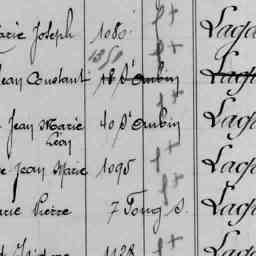 arie Joseph 1080 Laga
1350
Jean Constant 18 St Aubin Laga
Jean Marie 40 St Aubin Laga
Léon
e Jean Marie 1095 Laga
arie Pierre 7 Toug S. Laga
1128 Laga